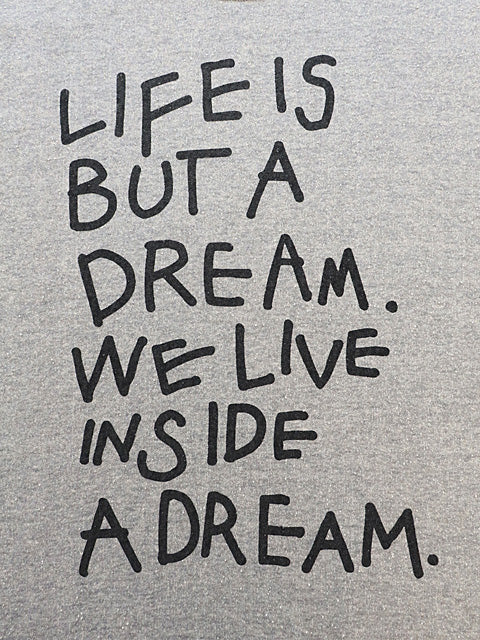 LIFE IS
BUT A
DREAM.
WE LIVE
INSIDE
A DREAM.